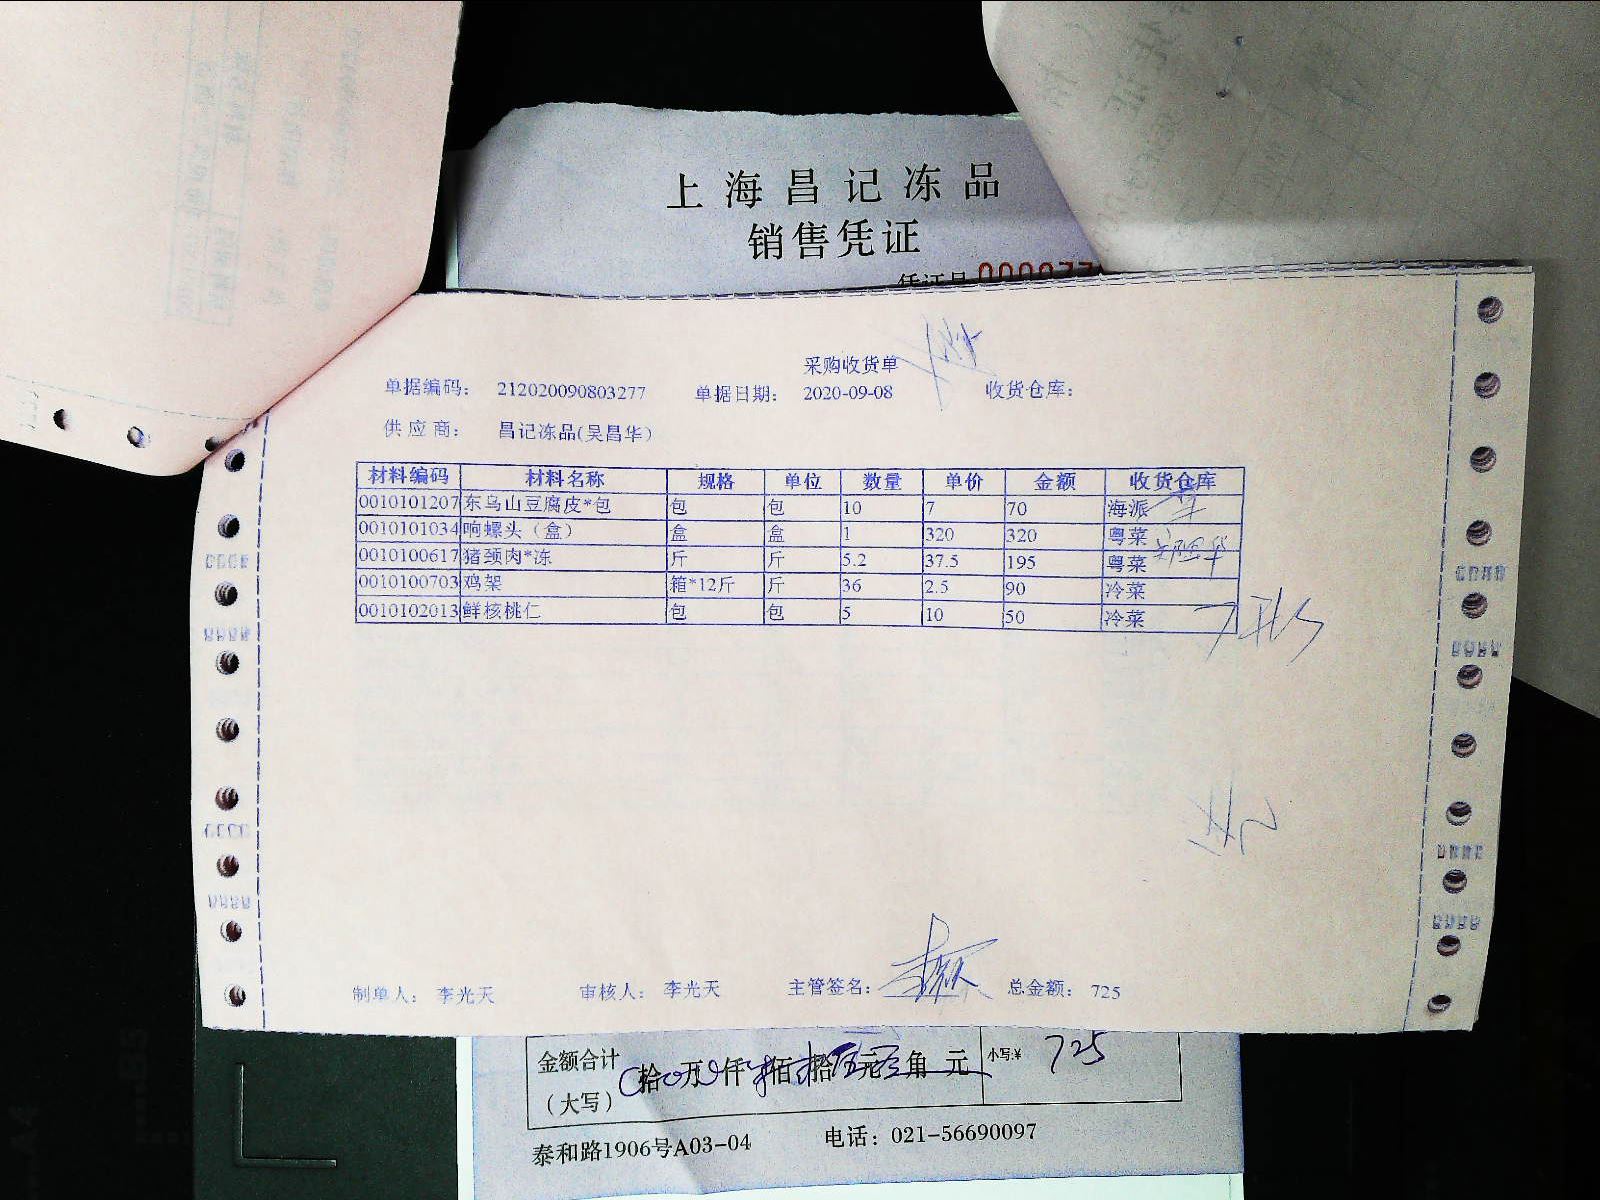 上海昌记冻品
销售凭证
凭证号 000077
采购收货单
单据编码： 212020090803277 单据日期： 2020-09-08 收货仓库：
供应商： 昌记冻品(吴昌华)
材料编码 材料名称 规格 单位 数量 单价 金额 收货仓库
0010101207 东乌山豆腐皮*包 包 包 10 7 70 海派
0010101034 响螺头（盒） 盒 盒 1 320 320 粤菜
0010100617 猪颈肉*冻 斤 斤 5.2 37.5 195 粤菜
0010100703 鸡架 箱*12斤 斤 36 2.5 90 冷菜
0010102013 鲜核桃仁 包 包 5 10 50 冷菜
制单人： 李光天 审核人： 李光天 主管签名： 总金额： 725
金额合计 拾 万 仟 佰 拾 元 角 元 小写:¥ 725
（大写）
泰和路1906号A03-04 电话：021-56690097